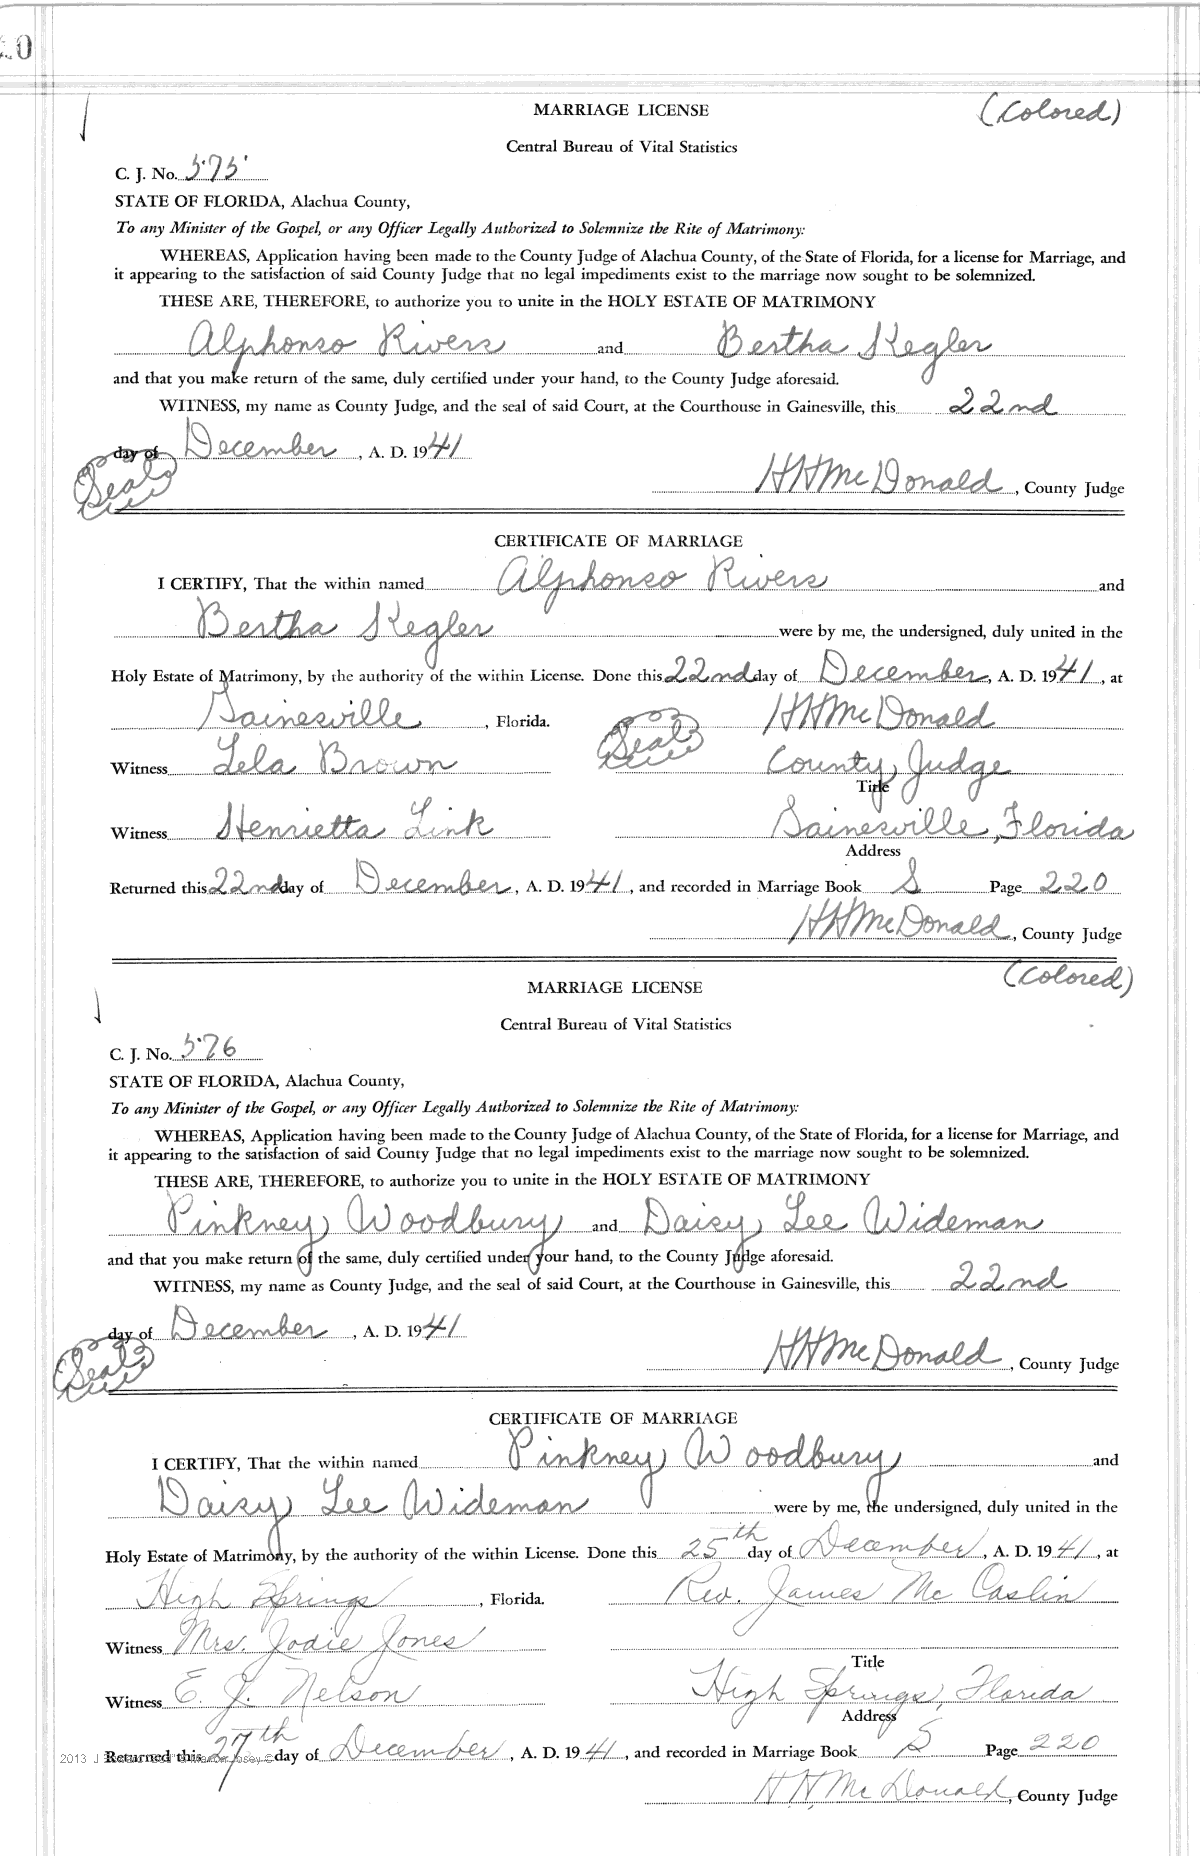 20
MARRIAGE LICENSE (Colored)
Central Bureau of Vital Statistics
C. J. No. 575
STATE OF FLORIDA, Alachua County,
To any Minister of the Gospel, or any Officer Legally Authorized to Solemnize the Rite of Matrimony:
WHEREAS, Application having been made to the County Judge of Alachua County, of the State of Florida, for a license for Marriage, and
it appearing to the satisfaction of said County Judge that no legal impediments exist to the marriage now sought to be solemnized.
THESE ARE, THEREFORE, to authorize you to unite in the HOLY ESTATE OF MATRIMONY
Alphonso Rivers and Bertha Kegler
and that you make return of the same, duly certified under your hand, to the County Judge aforesaid.
WITNESS, my name as County Judge, and the seal of said Court, at the Courthouse in Gainesville, this 22nd
day of December, A. D. 1941
Seal
HHMcDonald, County Judge
CERTIFICATE OF MARRIAGE
I CERTIFY, That the within named Alphonso Rivers and
Bertha Kegler were by me, the undersigned, duly united in the
Holy Estate of Matrimony, by the authority of the within License. Done this 22nd day of December, A. D. 1941, at
Gainesville, Florida. Seal HHMcDonald
Witness Lela Brown County Judge
Title
Witness Henrietta Link Gainesville, Florida
Address
Returned this 22nd day of December, A. D. 1941, and recorded in Marriage Book S Page 220
HHMcDonald, County Judge
(Colored)
MARRIAGE LICENSE
Central Bureau of Vital Statistics
C. J. No. 576
STATE OF FLORIDA, Alachua County,
To any Minister of the Gospel, or any Officer Legally Authorized to Solemnize the Rite of Matrimony:
WHEREAS, Application having been made to the County Judge of Alachua County, of the State of Florida, for a license for Marriage, and
it appearing to the satisfaction of said County Judge that no legal impediments exist to the marriage now sought to be solemnized.
THESE ARE, THEREFORE, to authorize you to unite in the HOLY ESTATE OF MATRIMONY
Pinkney Woodbury and Daisy Lee Wideman
and that you make return of the same, duly certified under your hand, to the County Judge aforesaid.
WITNESS, my name as County Judge, and the seal of said Court, at the Courthouse in Gainesville, this 22nd
day of December, A. D. 1941
Seal
HHMcDonald, County Judge
CERTIFICATE OF MARRIAGE
I CERTIFY, That the within named Pinkney Woodbury and
Daisy Lee Wideman were by me, the undersigned, duly united in the
Holy Estate of Matrimony, by the authority of the within License. Done this 25th day of December, A. D. 1941, at
High Springs, Florida. Rev. James McCaslin
Witness Mrs. Jodie Jones
Title
Witness E. J. Nelson High Springs, Florida
Address
2013 J
Returned this 27th day of December, A. D. 1941, and recorded in Marriage Book S Page 220
H.H. McDonald, County Judge